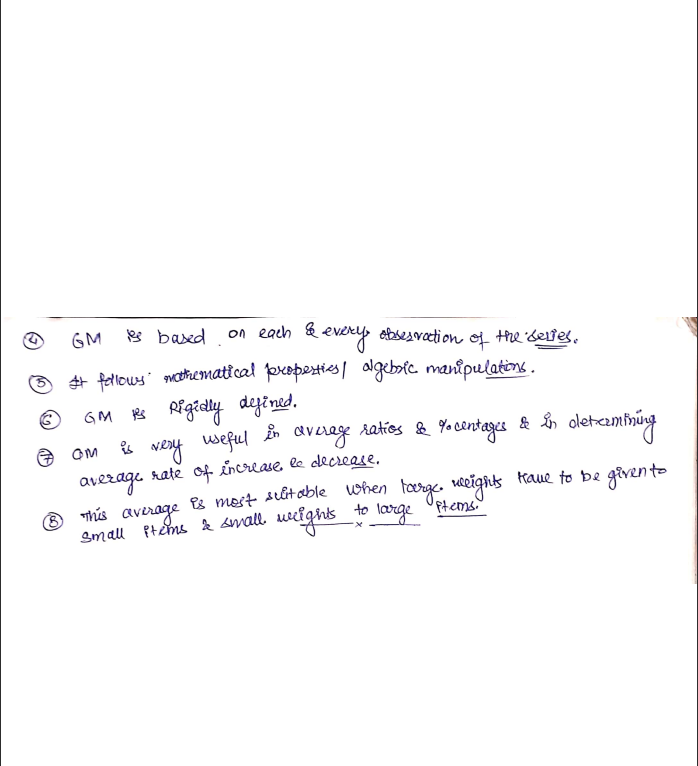 ④ GM is based on each & every obsesvation of the series.
⑤ It follows mathematical properties/ algebric manipulations.
⑥ GM is Rigidly defined.
⑦ GM is very useful in average ratios & %centages & in determining
average rate of increase & decrease.
⑧ This average is most suitable when large weights have to be given to
small items & small weights to large items.
x